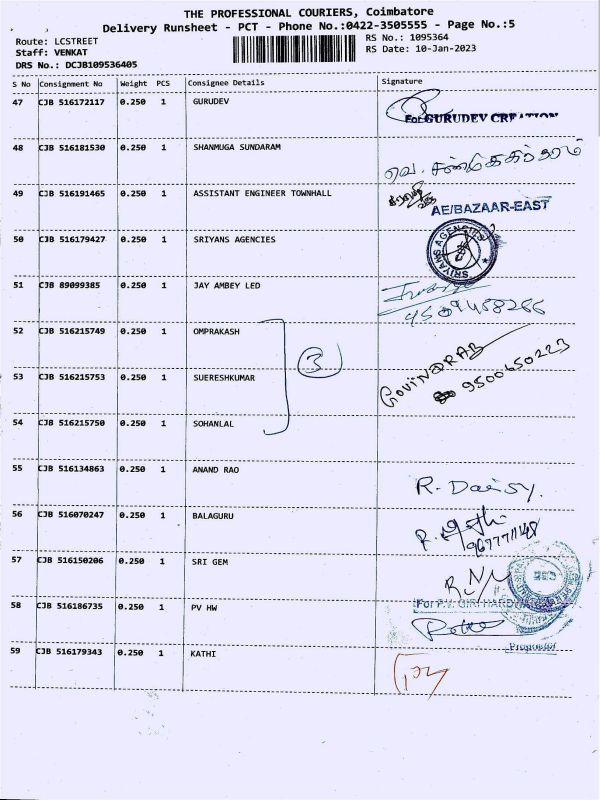 THE PROFESSIONAL COURIERS, Coimbatore
Delivery Runsheet - PCT - Phone No.:0422-3505555 - Page No.:5
Route: LCSTREET RS No.: 1095364
Staff: VENKAT RS Date: 10-Jan-2023
DRS No.: DCJB109536405
S No Consignment No Weight PCS Consignee Details Signature
47 CJB 516172117 0.250 1 GURUDEV
For GURUDEV CREATION
48 CJB 516181530 0.250 1 SHANMUGA SUNDARAM
வெ. சண்முகசுந்தரம்
49 CJB 516191465 0.250 1 ASSISTANT ENGINEER TOWNHALL
AE/BAZAAR-EAST
50 CJB 516179427 0.250 1 SRIYANS AGENCIES
SRIYANS AGENCIES
51 CJB 89099385 0.250 1 JAY AMBEY LED
52 CJB 516215749 0.250 1 OMPRAKASH
3
53 CJB 516215753 0.250 1 SUERESHKUMAR
9500650223
54 CJB 516215750 0.250 1 SOHANLAL
55 CJB 516134863 0.250 1 ANAND RAO
R. Daisy.
56 CJB 516070247 0.250 1 BALAGURU
57 CJB 516150206 0.250 1 SRI GEM
58 CJB 516186735 0.250 1 PV HW
Proprietor
59 CJB 516179343 0.250 1 KATHI